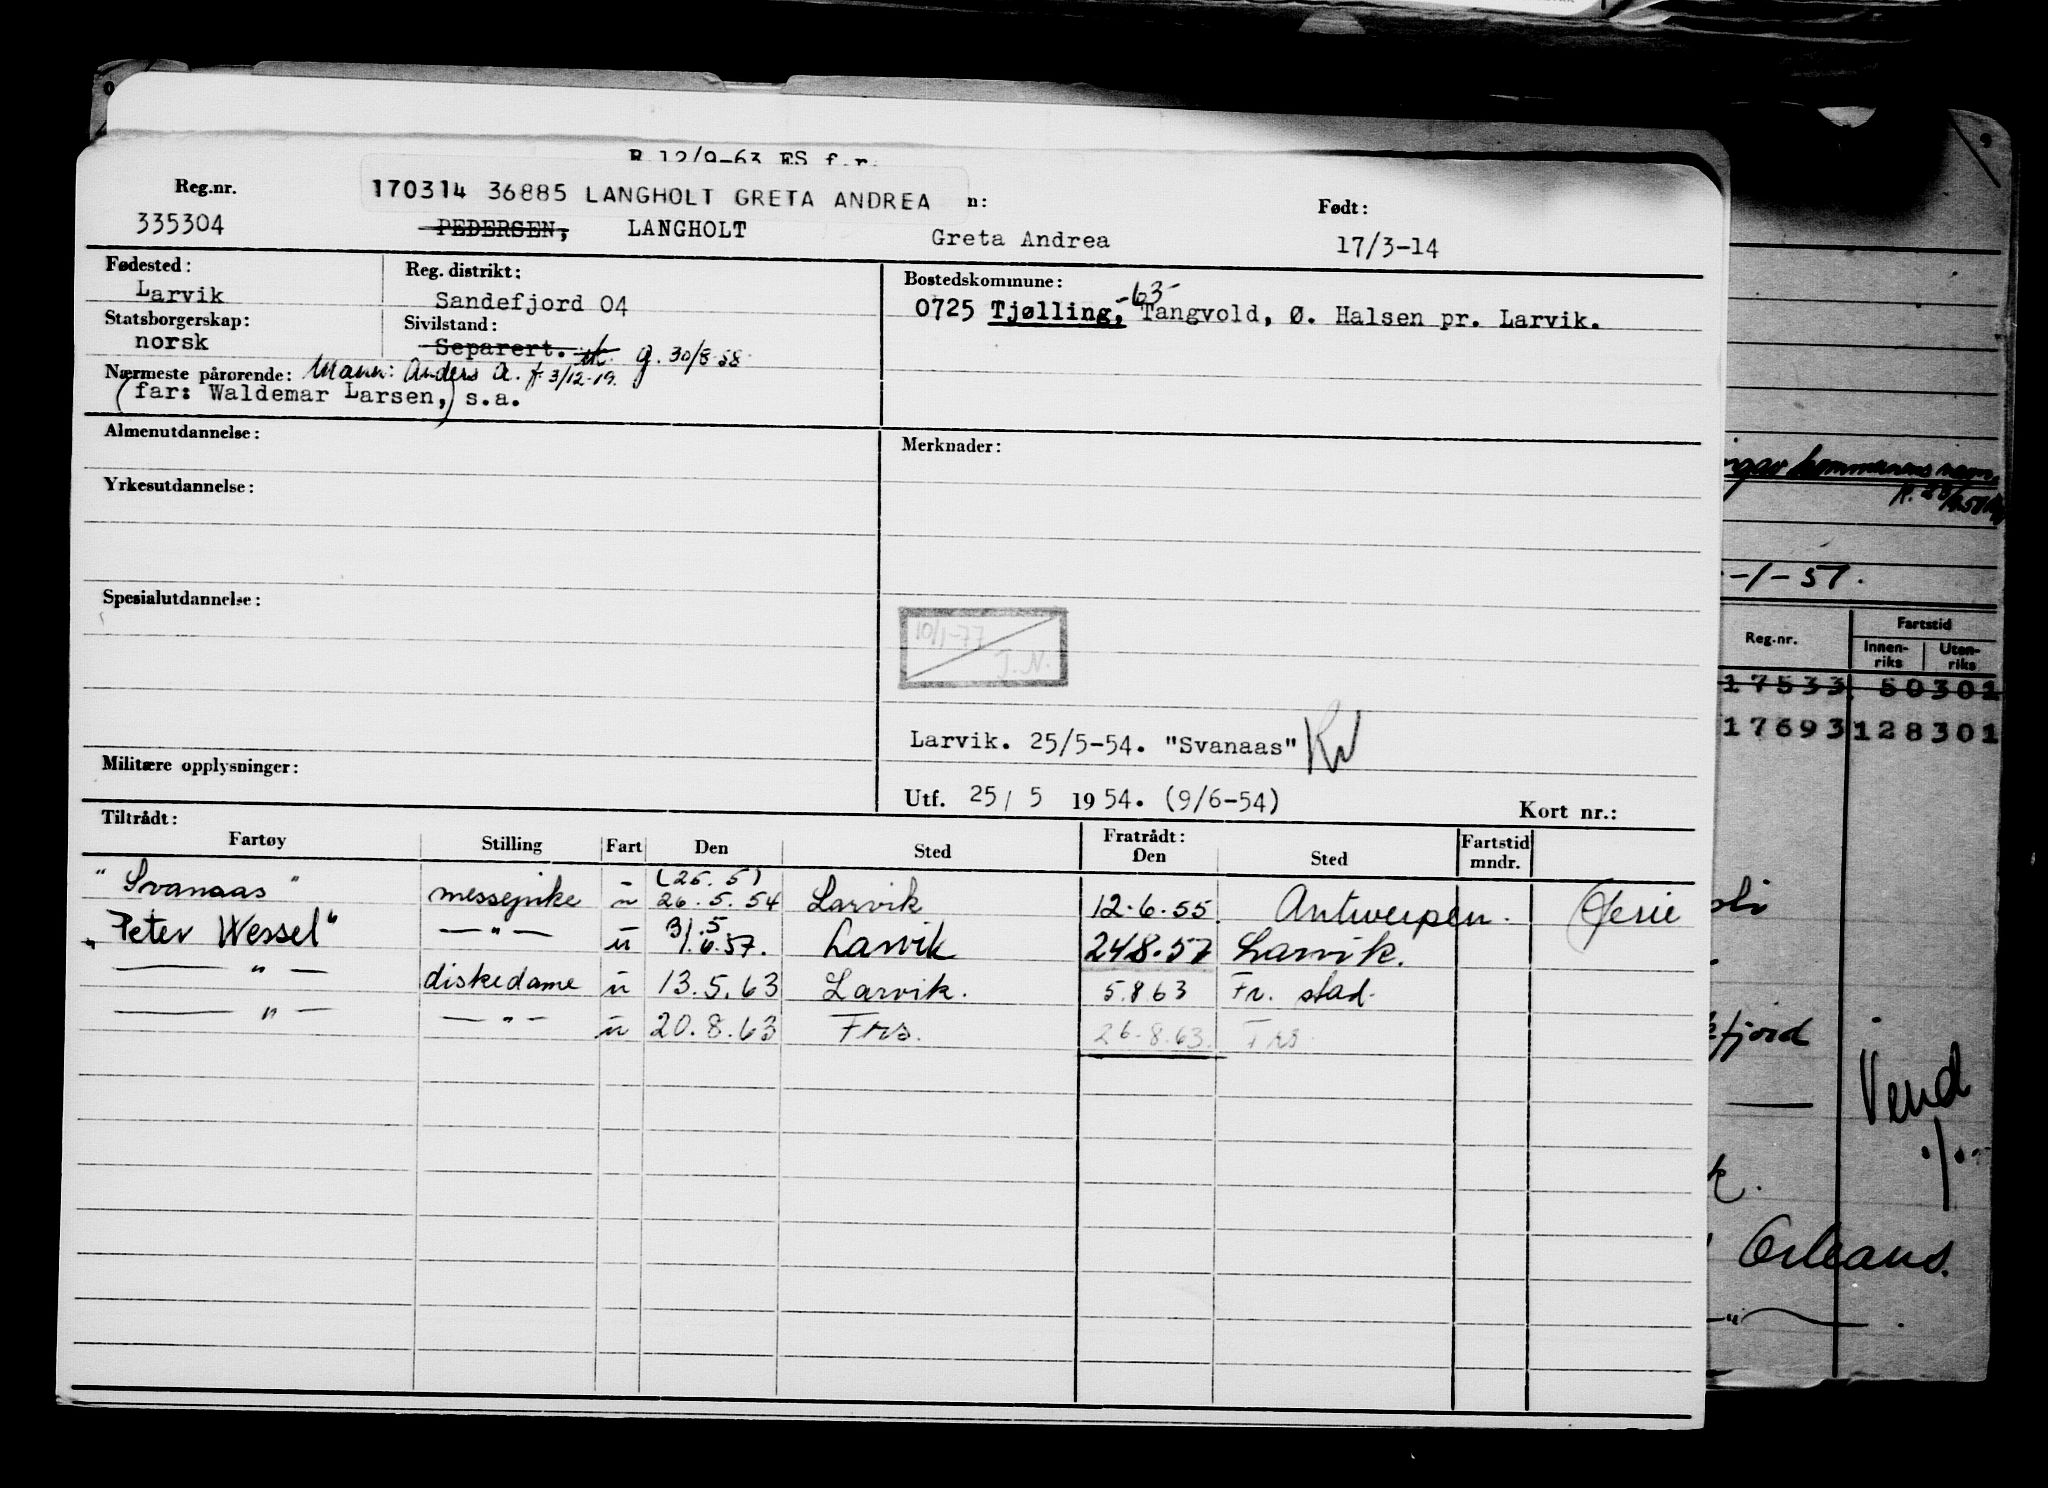 R 12/9-63 ES f.r.
Reg.nr. 170314 36885 LANGHOLT GRETA ANDREA n: Født:
335304 PEDERSEN, LANGHOLT Greta Andrea 17/3-14
Fødested: Reg. distrikt: Bostedskommune:
Larvik Sandefjord 04 0725 Tjølling, -63- Tangvold, Ø. Halsen pr. Larvik.
Statsborgerskap: Sivilstand:
norsk Separert. g. 30/8-58
Nærmeste pårørende: Mann: Anders A. f. 3/12-19.
(far: Waldemar Larsen,) s.a.
Almenutdannelse: Merknader:
Yrkesutdannelse:
Spesialutdannelse:
10/1-77
J.N.
Larvik. 25/5-54. "Svanaas"
Militære opplysninger:
Utf. 25/ 5 1954. (9/6-54) Kort nr.:
Tiltrådt: Fratrådt: Fartstid
Fartøy Stilling Fart Den Sted Den Sted mndr.
"Svanaas" messepike u (25.5) 26.5.54 Larvik 12.6.55. Antwerpen. Ferie
"Peter Wessel" —"— u 31.5 1.6.57. Larvik 24.8.57 Larvik.
—"— diskedame u 13.5.63 Larvik. 5.8 63 Fr. stad.
—"— —"— u 20.8.63 Frs. 26.8.63. Frs
kommunens navn
-1-57.
Reg.nr. Fartstid
Innen-riks Uten-riks
17533 50301
17693 128301
fjord
Vend
./.
Orleans.
—"—